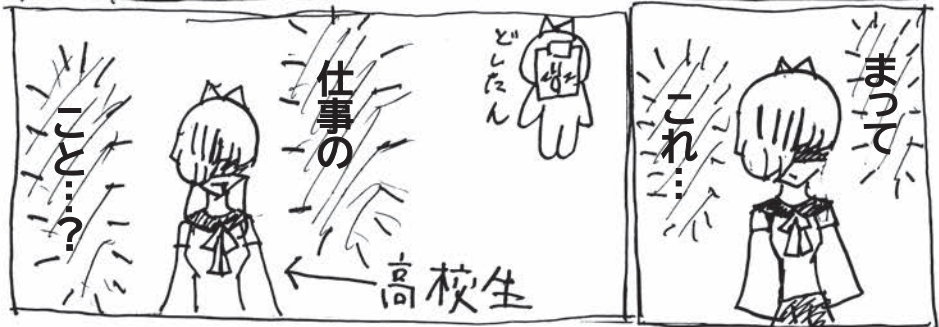 まって
これ…
どしたん
仕事の
こと…?
高校生